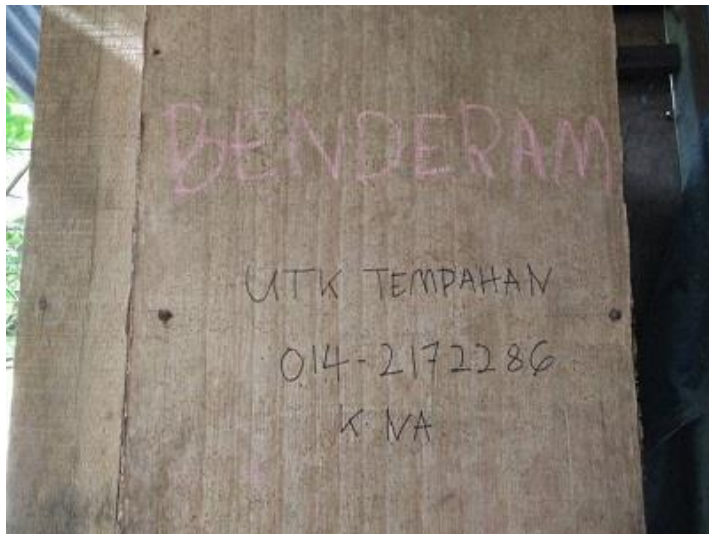 BENDERAM
UTK TEMPAHAN
014-2172286
K. NA